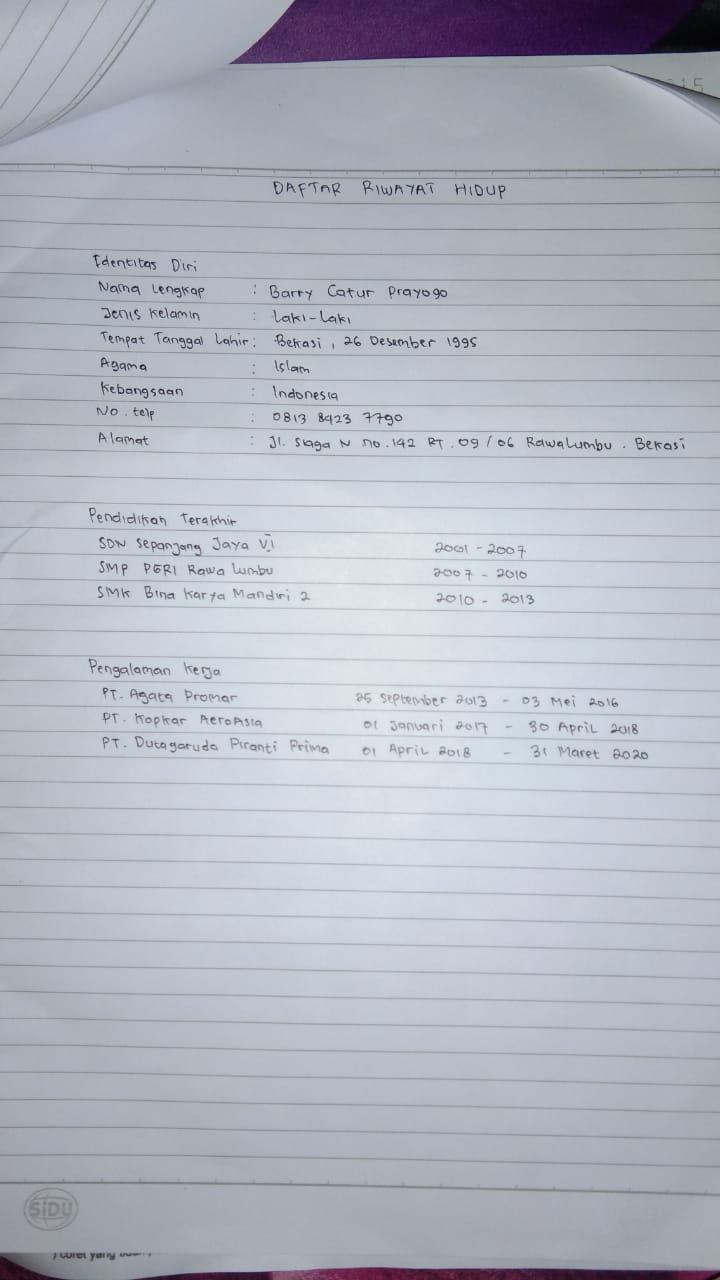 15
DAFTAR RIWAYAT HIDUP
Identitas Diri
Nama Lengkap : Barry Catur Prayogo
Jenis Kelamin : Laki-Laki
Tempat Tanggal Lahir : Bekasi, 26 Desember 1995
Agama : Islam
Kebangsaan : Indonesia
No. telp : 0813 8423 7790
Alamat : Jl. Siaga N no.142 RT.09/06 Rawalumbu. Bekasi
Pendidikan Terakhir
SDN Sepanjang Jaya VI 2001 - 2007
SMP PGRI Rawa Lumbu 2007 - 2010
SMK Bina Karya Mandiri 2 2010 - 2013
Pengalaman Kerja
PT. Agata Promar 25 September 2013 - 03 Mei 2016
PT. Kopkar AeroAsia 01 Januari 2017 - 30 April 2018
PT. Dutagaruda Piranti Prima 01 April 2018 - 31 Maret 2020
SiDU
) coret yang